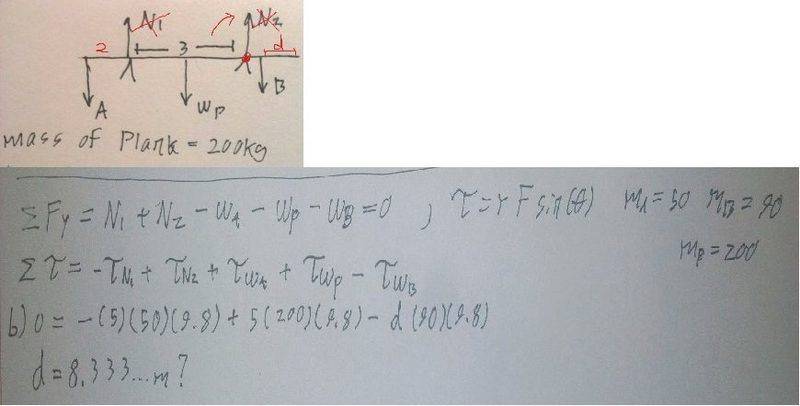 N1 N2
2 3 d
A Wp B
mass of Plank = 200kg
ΣFy = N1 + N2 - WA - Wp - WB = 0 , τ = r F sin(θ) mA = 50 mB = 90
mp = 200
Στ = -τN1 + τN2 + τWA + τWp - τWB
b) 0 = -(5)(50)(9.8) + 5(200)(9.8) - d(90)(9.8)
d = 8.333...m?